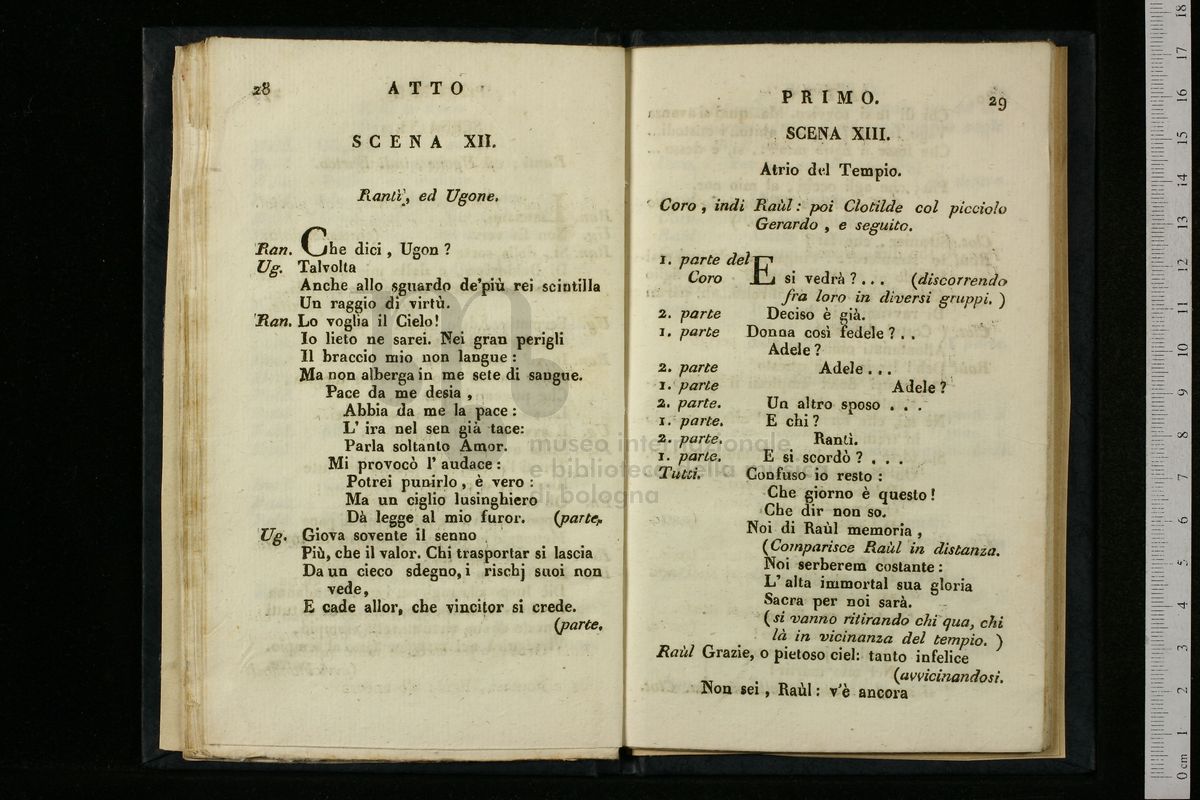 28
ATTO
SCENA XII.
Rantì, ed Ugone.
Ran. Che dici, Ugon?
Ug. Talvolta
Anche allo sguardo de'più rei scintilla
Un raggio di virtù.
Ran. Lo voglia il Cielo!
Io lieto ne sarei. Nei gran perigli
Il braccio mio non langue:
Ma non alberga in me sete di sangue.
Pace da me desia,
Abbia da me la pace:
L' ira nel sen già tace:
Parla soltanto Amor.
Mi provocò l' audace:
Potrei punirlo, è vero:
Ma un ciglio lusinghiero
Dà legge al mio furor. (parte.
Ug. Giova sovente il senno
Più, che il valor. Chi trasportar si lascia
Da un cieco sdegno, i rischj suoi non
vede,
E cade allor, che vincitor si crede.
(parte.
PRIMO.
29
SCENA XIII.
Atrio del Tempio.
Coro, indi Raùl: poi Clotilde col picciolo
Gerardo, e seguito.
1. parte del
Coro E si vedrà?... (discorrendo
fra loro in diversi gruppi.)
2. parte Deciso è già.
1. parte Donna così fedele?..
Adele?
2. parte Adele...
1. parte Adele?
2. parte. Un altro sposo ...
1. parte. E chi?
2. parte. Rantì.
1. parte. E si scordò?...
Tutti. Confuso io resto:
Che giorno è questo!
Che dir non so.
Noi di Raùl memoria,
(Comparisce Raùl in distanza.
Noi serberem costante:
L' alta immortal sua gloria
Sacra per noi sarà.
(si vanno ritirando chi qua, chi
là in vicinanza del tempio.)
Raùl Grazie, o pietoso ciel: tanto infelice
(avvicinandosi.
Non sei, Raùl: v'è ancora
museo internazionale
e biblioteca della musica
di bologna
0 cm 1 2 3 4 5 6 7 8 9 10 11 12 13 14 15 16 17 18